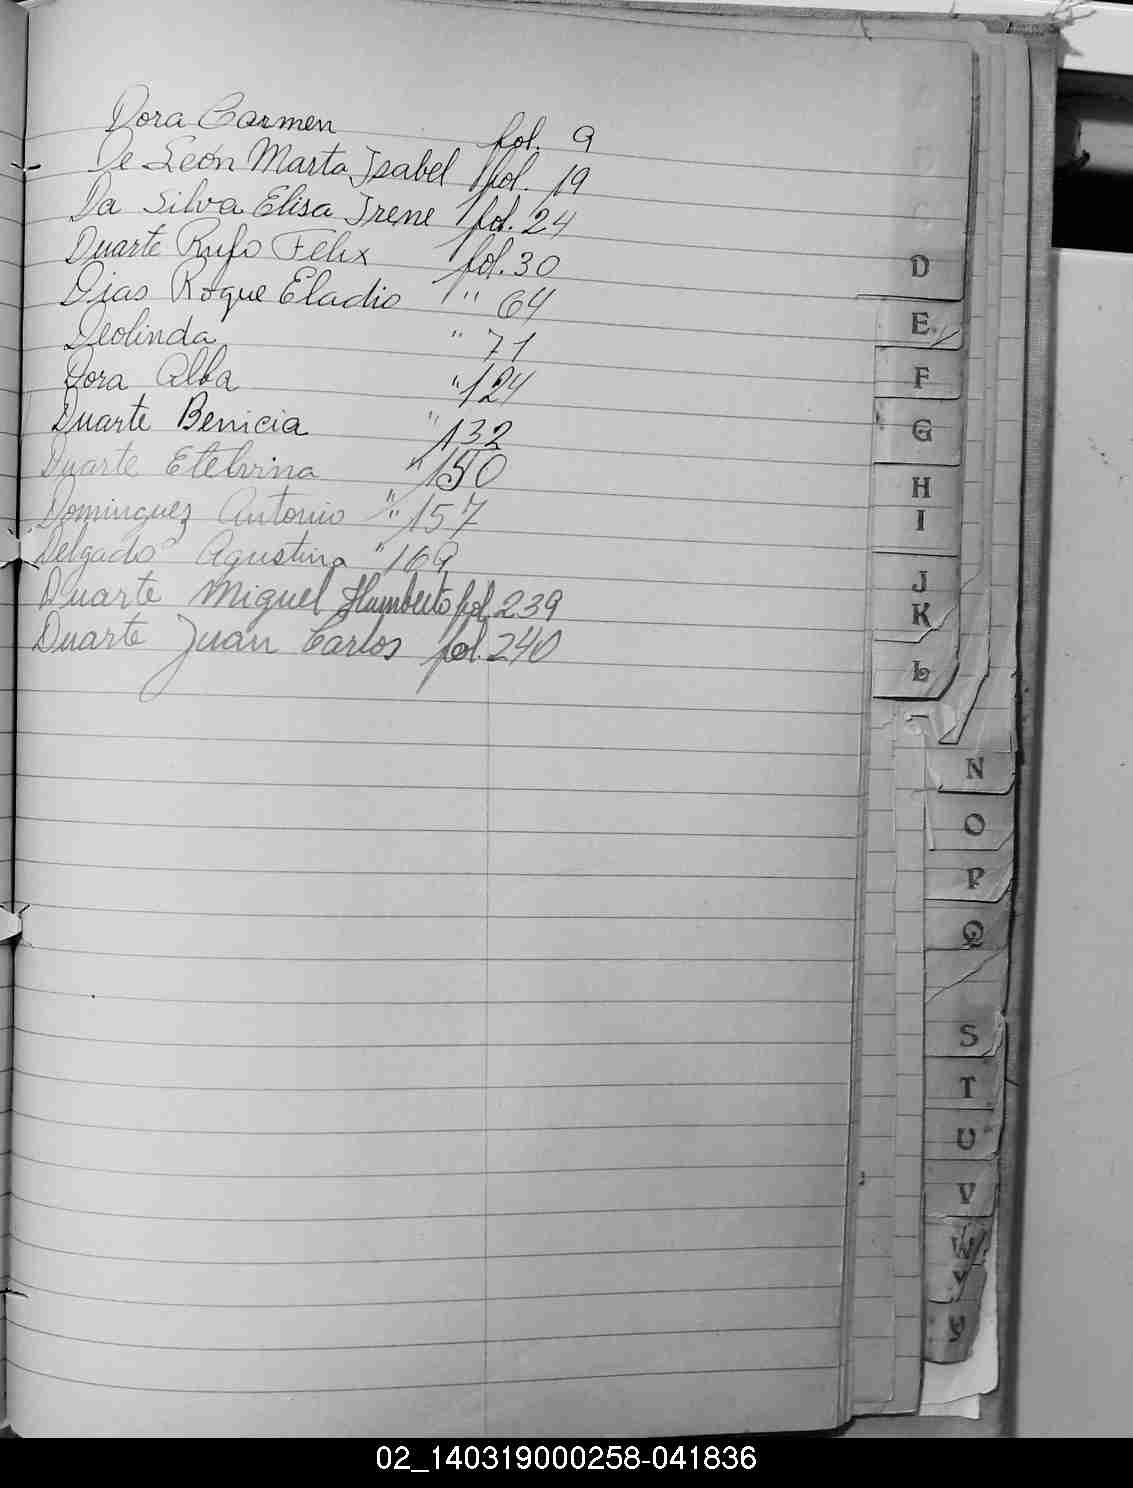 Dora Carmen fol. 9
De León Marta Isabel fol. 19
Da Silva Elisa Irene fol. 24
Duarte Rufo Felix fol. 30
Dias Roque Eladio " 64
Deolinda " 71
Dora Alba " 124
Duarte Benicia " 132
Duarte Etelvina " 150
Dominguez Antonio " 157
Delgado Agustina " 169
Duarte Miguel Humberto fol. 239
Duarte Juan Carlos fol. 240
D
E
F
G
H
I
J
K
L
N
O
P
Q
S
T
U
V
W
Y
02_140319000258-041836